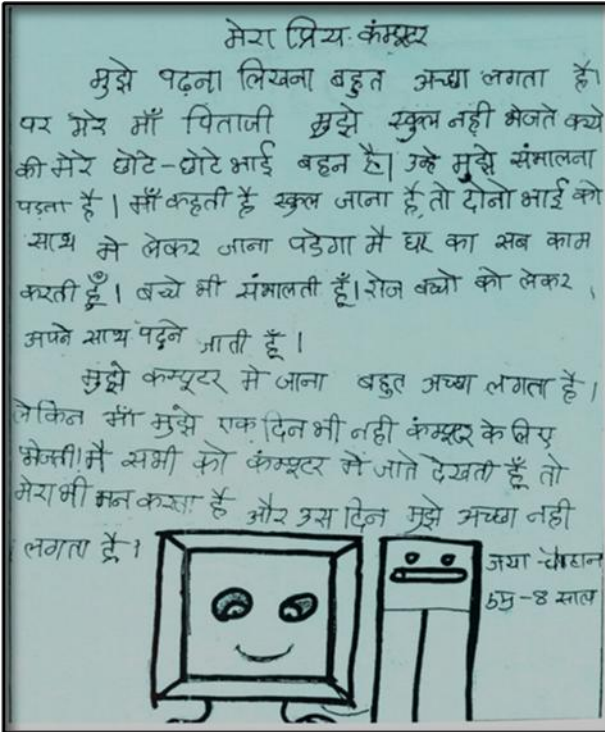 मेरा प्रिय कंम्प्यूटर
मुझे पढ़ना लिखना बहुत अच्छा लगता है।
पर मेरे माँ पिताजी मुझे स्कुल नही भेजते क्ये
की मेरे छोटे-छोटे भाई बहन है। उन्हे मुझे संभालना
पड़ता है। माँ कहती है स्कुल जाना है, तो दोनो भाई को
साथ मे लेकर जाना पडेगा मै घर का सब काम
करती हूँ। बच्चे भी संभालती हूँ। रोज बच्चो को लेकर
अपने साथ पढ़ने जाती हूँ।
मुझे कम्पूटर मे जाना बहुत अच्छा लगता है।
लेकिन माँ मुझे एक दिन भी नही कंम्प्यूटर के लिए
भेजती। मै सभी को कंम्प्यूटर में जाते देखती हूँ तो
मेरा भी मन करता है और उस दिन मुझे अच्छा नही
लगता है।
जया चौहान
उम्र-8 साल